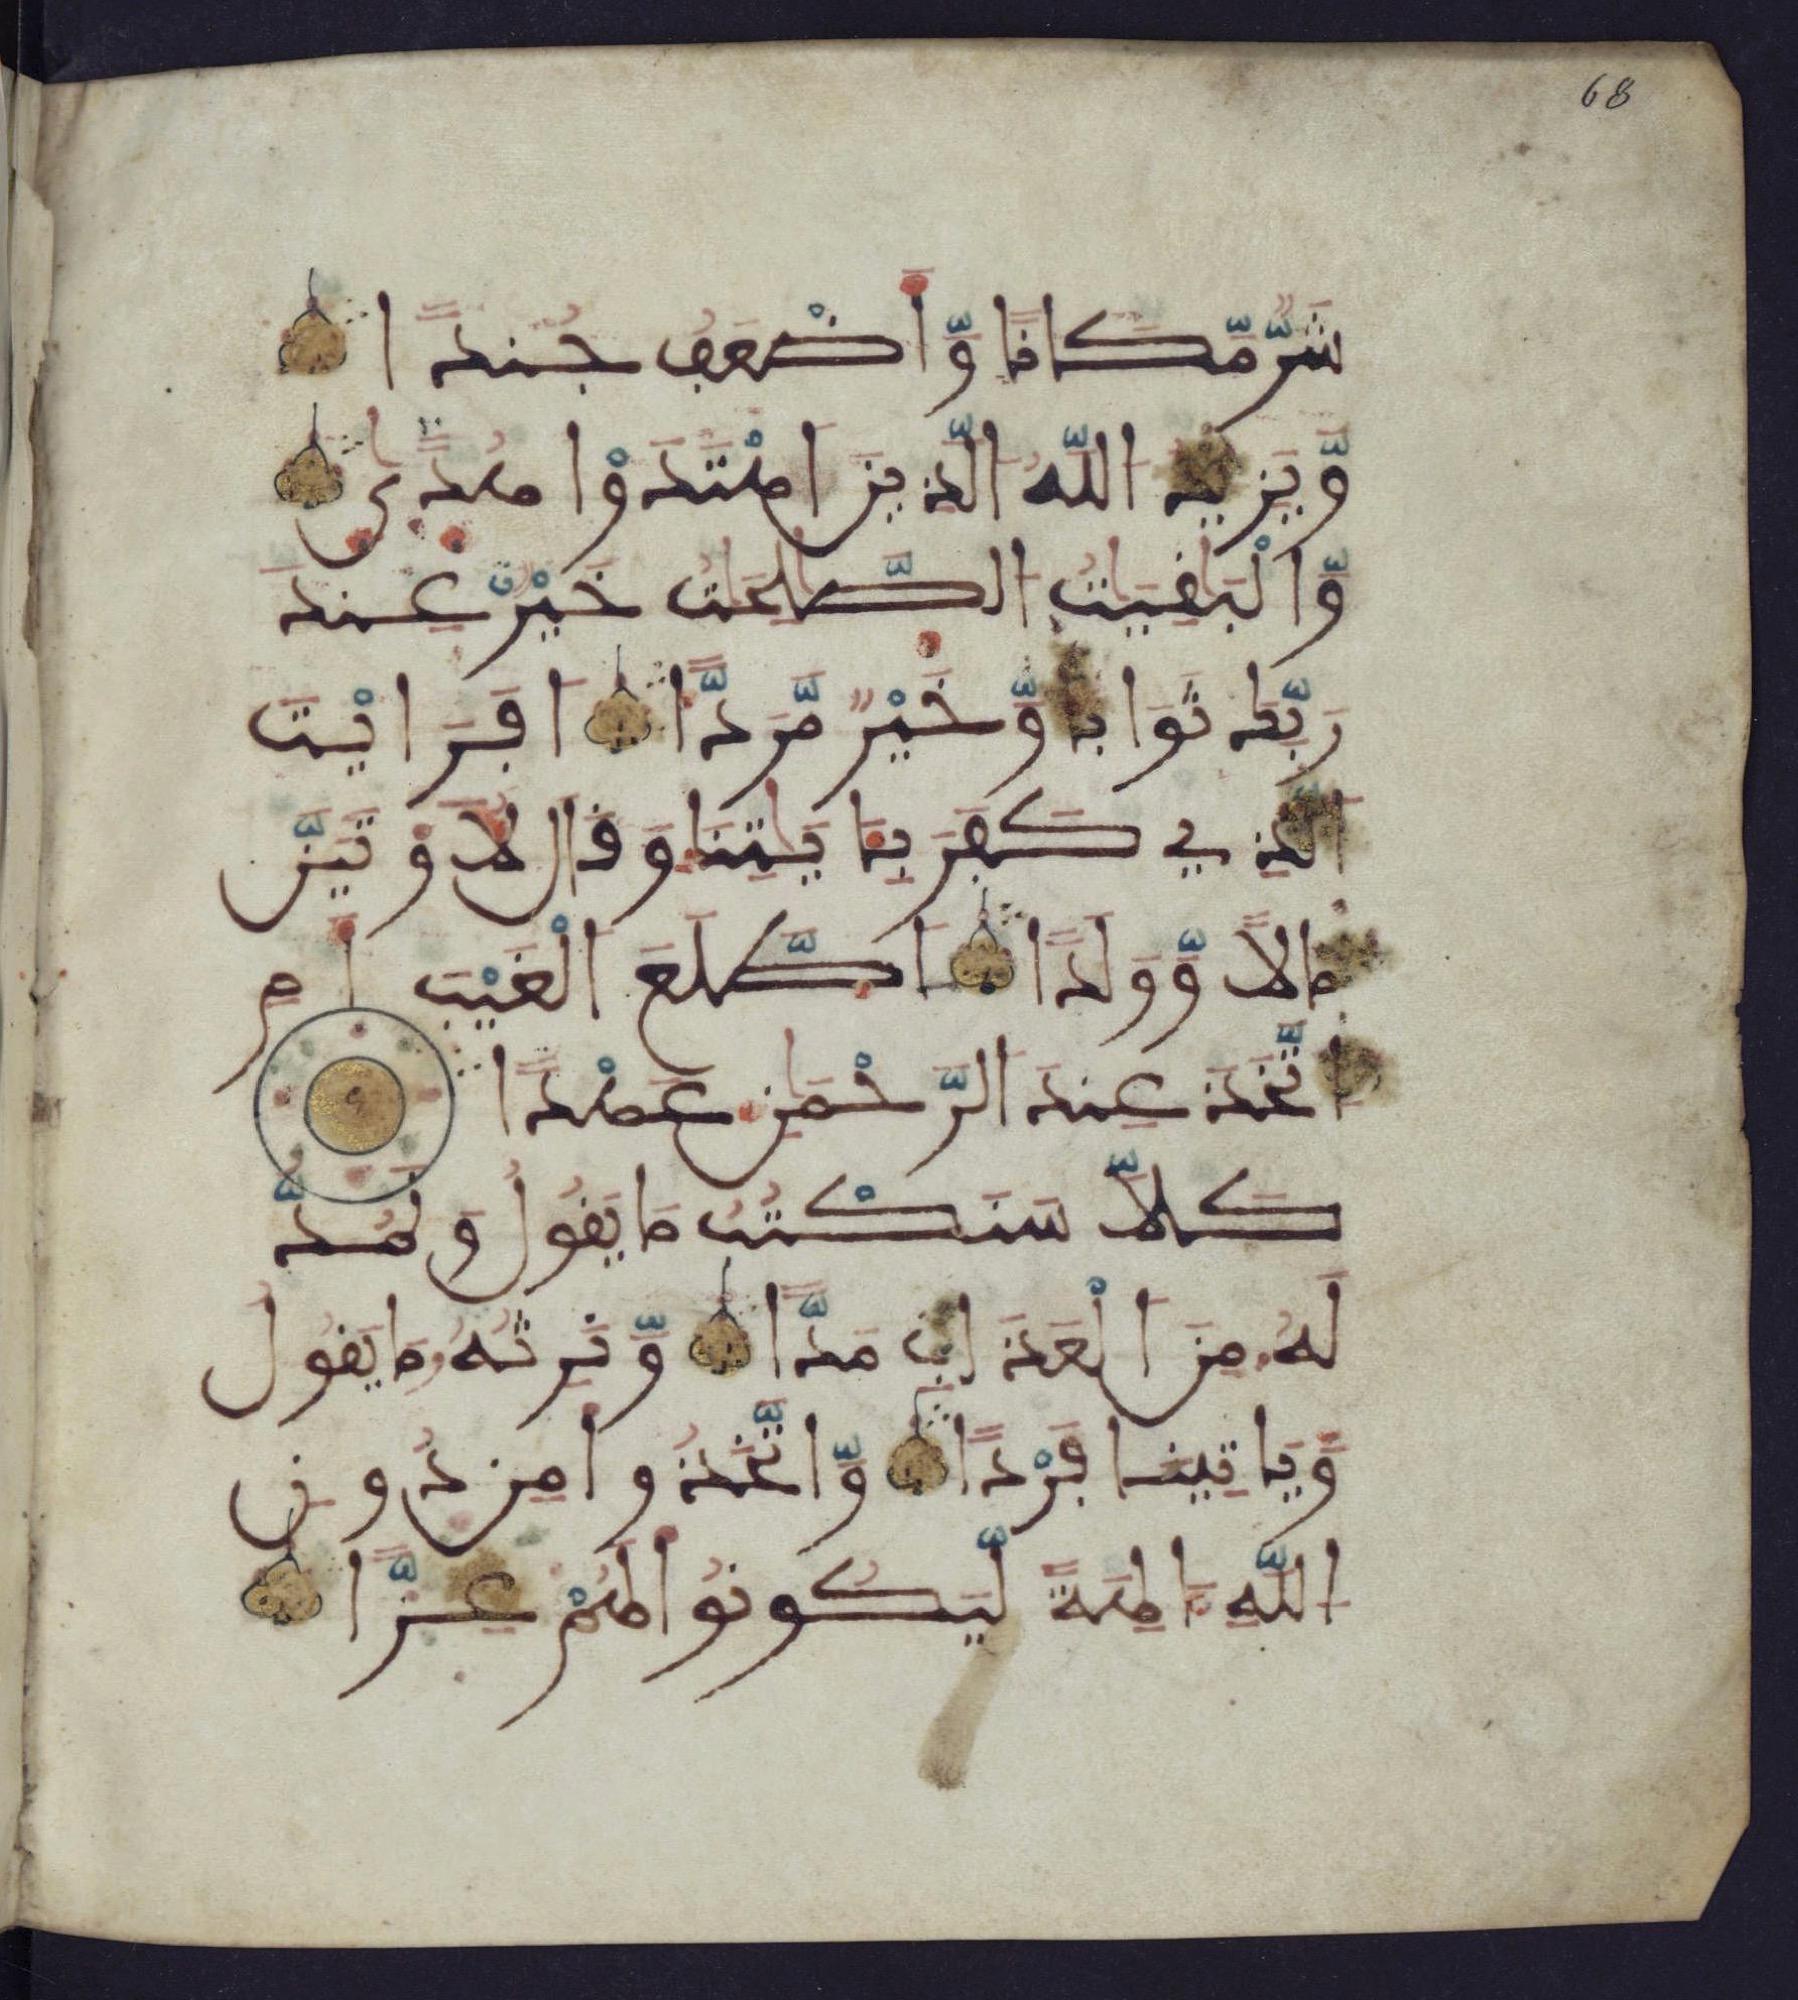 68
شَرٌّ مَّكَانًا وَّأَضْعَفُ جُندًا
وَّيَزِيدُ اللَّهُ الَّذِينَ اهْتَدَوْا هُدًى
وَّالْبَٰفِيَٰتُ الصَّٰلِحَٰتُ خَيْرٌ عِندَ
رَبِّكَ ثَوَابًا وَّخَيْرٌ مَّرَدًّا اَفَرَايْتَ
الَّذِي كَفَرَ بِـَٔايَٰتِنَا وَقَالَ لَأُوتَيَنَّ
مَالًا وَّوَلَدًا اَطَّلَعَ الْغَيْبَ أَمِ
اتَّخَذَ عِندَ الرَّحْمَٰنِ عَهْدًا
كَلَّا سَنَكْتُبُ مَا يَقُولُ وَنَمُدُّ
لَهُ مِنَ الْعَذَابِ مَدًّا وَّنَرِثُهُ مَا يَقُولُ
وَّيَاتِينَا فَرْدًا وَّاتَّخَذُوا مِن دُونِ
اللَّهِ ءَالِهَةً لِّيَكُونُوا لَهُمْ عِزًّا